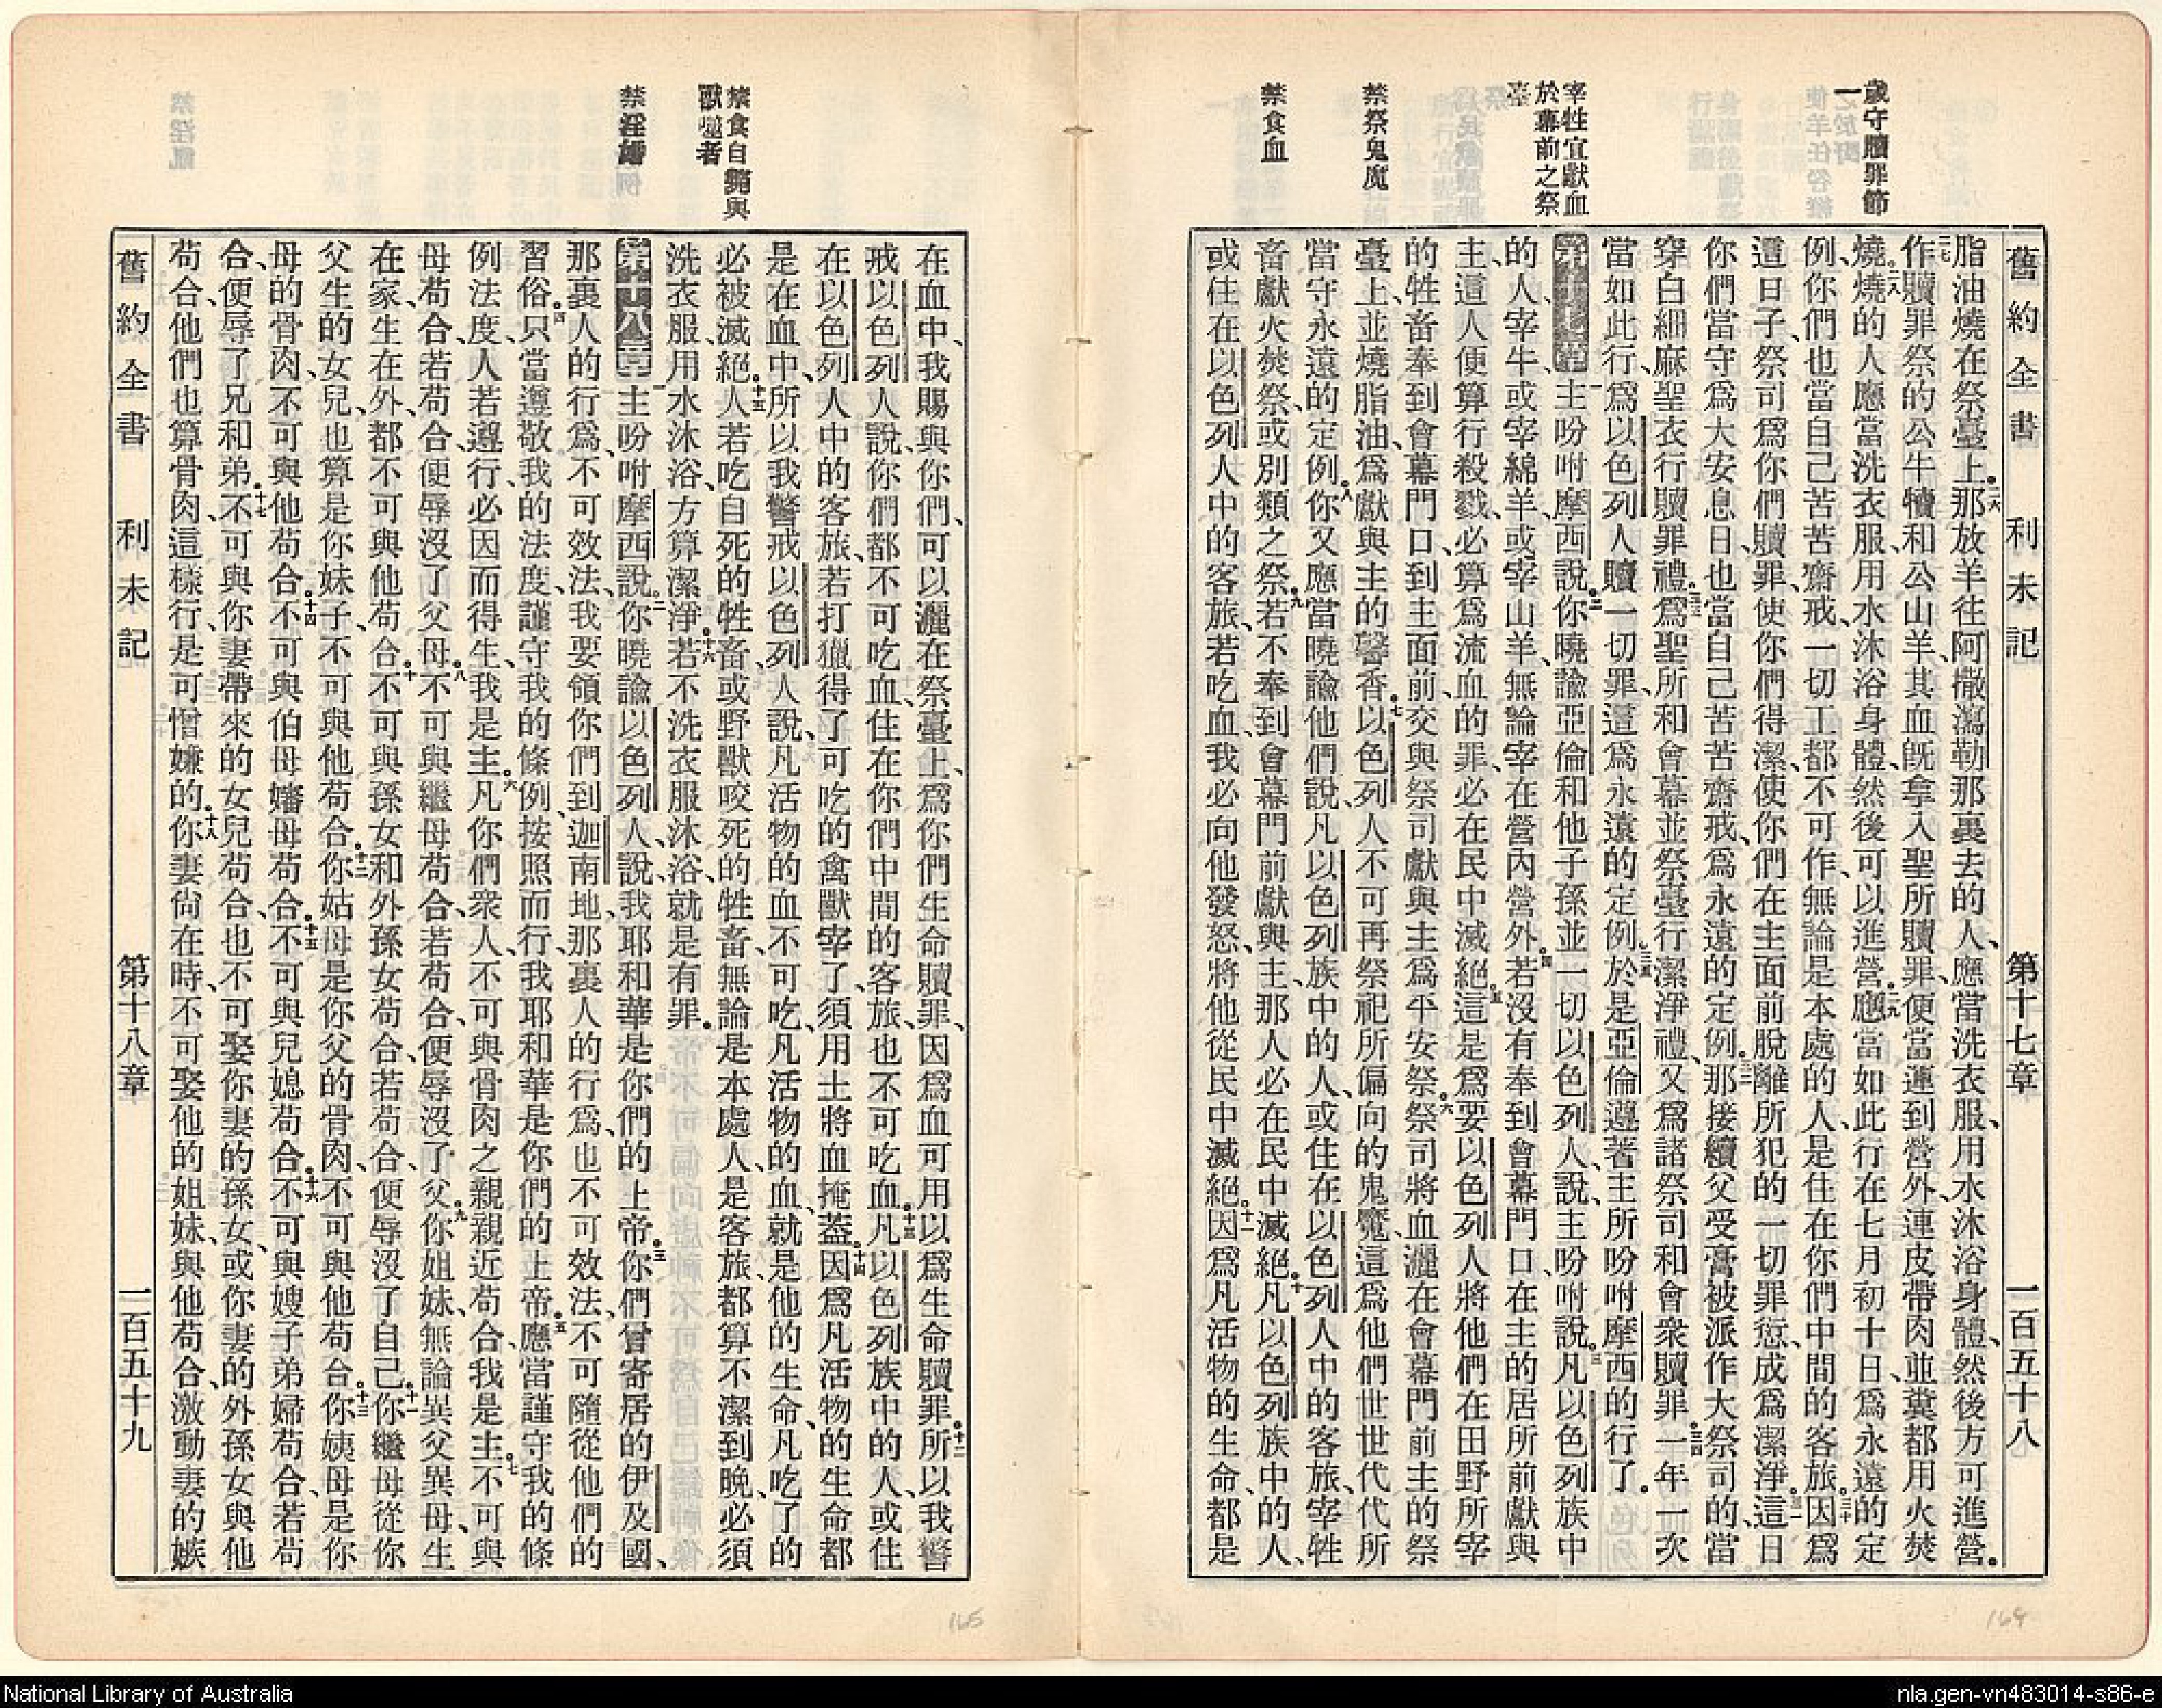 歲守贖罪節
一
宰牲宜獻血
於幕前之祭
臺
禁祭鬼魔
禁食血
舊約全書 利未記 第十七章 一百五十八
脂油燒在祭臺上。二六那放羊往阿撒瀉勒那裏去的人、應當洗衣服、用水沐浴身體、然後方可進營。
二七作贖罪祭的公牛犢和公山羊、其血旣拿入聖所贖罪、便當運到營外、連皮帶肉並糞都用火焚
燒。二八燒的人應當洗衣服、用水沐浴身體、然後可以進營。二九應當如此行、在七月初十日、爲永遠的定
例、你們也當自己苦苦齋戒、一切工都不可作、無論是本處的人、是住在你們中間的客旅。三十因爲
這日子、祭司爲你們贖罪、使你們得潔、使你們在主面前脫離所犯的一切罪愆、成爲潔淨。三一這日
你們當守爲大安息日、也當自己苦苦齋戒、爲永遠的定例。三二那接續父受膏被派作大祭司的、當
穿白細麻聖衣行贖罪禮。三三爲聖所和會幕並祭臺行潔淨禮、又爲諸祭司和會衆贖罪。三四一年一次
當如此行、爲以色列人贖一切罪、這爲永遠的定例。三五於是亞倫遵著主所吩咐摩西的行了。
第十七章 一主吩咐摩西說、二你曉諭亞倫和他子孫並一切以色列人、說、主吩咐說、三凡以色列族中
的人、宰牛、或宰綿羊、或宰山羊、無論宰在營內營外、四若沒有奉到會幕門口、在主的居所前獻與
主、這人便算行殺戮、必算爲流血的罪、必在民中滅絕。五這是爲要以色列人將他們在田野所宰
的牲畜、奉到會幕門口、到主面前、交與祭司獻與主爲平安祭。六祭司將血灑在會幕門前主的祭
臺上、並燒脂油、爲獻與主的馨香。七以色列人不可再祭祀所偏向的鬼魔、這爲他們世世代代所
當守永遠的定例。八你又應當曉諭他們說、凡以色列族中的人、或住在以色列人中的客旅、宰牲
畜獻火焚祭、或別類之祭、九若不奉到會幕門前獻與主、那人必在民中滅絕。十凡以色列族中的人、
或住在以色列人中的客旅、若吃血、我必向他發怒、將他從民中滅絕。十一因爲凡活物的生命、都是
禁食自斃與
獸噬者
禁淫
在血中、我賜與你們、可以灑在祭臺上、爲你們生命贖罪、因爲血可用以爲生命贖罪。十二所以我警
戒以色列人說、你們都不可吃血、住在你們中間的客旅、也不可吃血。十三凡以色列族中的人、或住
在以色列人中的客旅、若打獵得了可吃的禽獸、宰了、須用土將血掩蓋。十四因爲凡活物的生命都
是在血中、所以我警戒以色列人說、凡活物的血不可吃、凡活物的血、就是他的生命、凡吃了的
必被滅絕。十五人若吃自死的牲畜、或野獸咬死的牲畜、無論是本處人、是客旅、都算不潔到晚、必須
洗衣服、用水沐浴、方算潔淨。十六若不洗衣服沐浴、就是有罪。
第十八章 一主吩咐摩西說、二你曉諭以色列人、說、我耶和華是你們的上帝。三你們曾寄居的伊及國、
那裏人的行爲、不可效法、我要領你們到迦南地、那裏人的行爲、也不可效法、不可隨從他們的
習俗。四只當遵敬我的法度、謹守我的條例、按照而行、我耶和華是你們的上帝。五應當謹守我的條
例法度、人若遵行、必因而得生、我是主。六凡你們衆人、不可與骨肉之親親近苟合、我是主。七不可與
母苟合、若苟合、便辱沒了父母。八不可與繼母苟合、若苟合、便辱沒了父。九你姐妹、無論異父異母、生
在家、生在外、都不可與他苟合。十不可與孫女和外孫女苟合、若苟合、便辱沒了自己。十一你繼母從你
父生的女兒、也算是你妹子、不可與他苟合。十二你姑母是你父的骨肉、不可與他苟合。十三你姨母是你
母的骨肉、不可與他苟合。十四不可與伯母嬸母苟合。十五不可與兒媳苟合。十六不可與嫂子弟婦苟合、若苟
合、便辱了兄和弟。十七不可與你妻帶來的女兒苟合、也不可娶你妻的孫女、或你妻的外孫女、與他
苟合、他們也算骨肉、這樣行、是可憎嫌的。十八你妻尙在時、不可娶他的姐妹、與他苟合、激動妻的嫉
舊約全書 利未記 第十八章 一百五十九
165
164
National Library of Australia
nla.gen-vn483014-s86-e